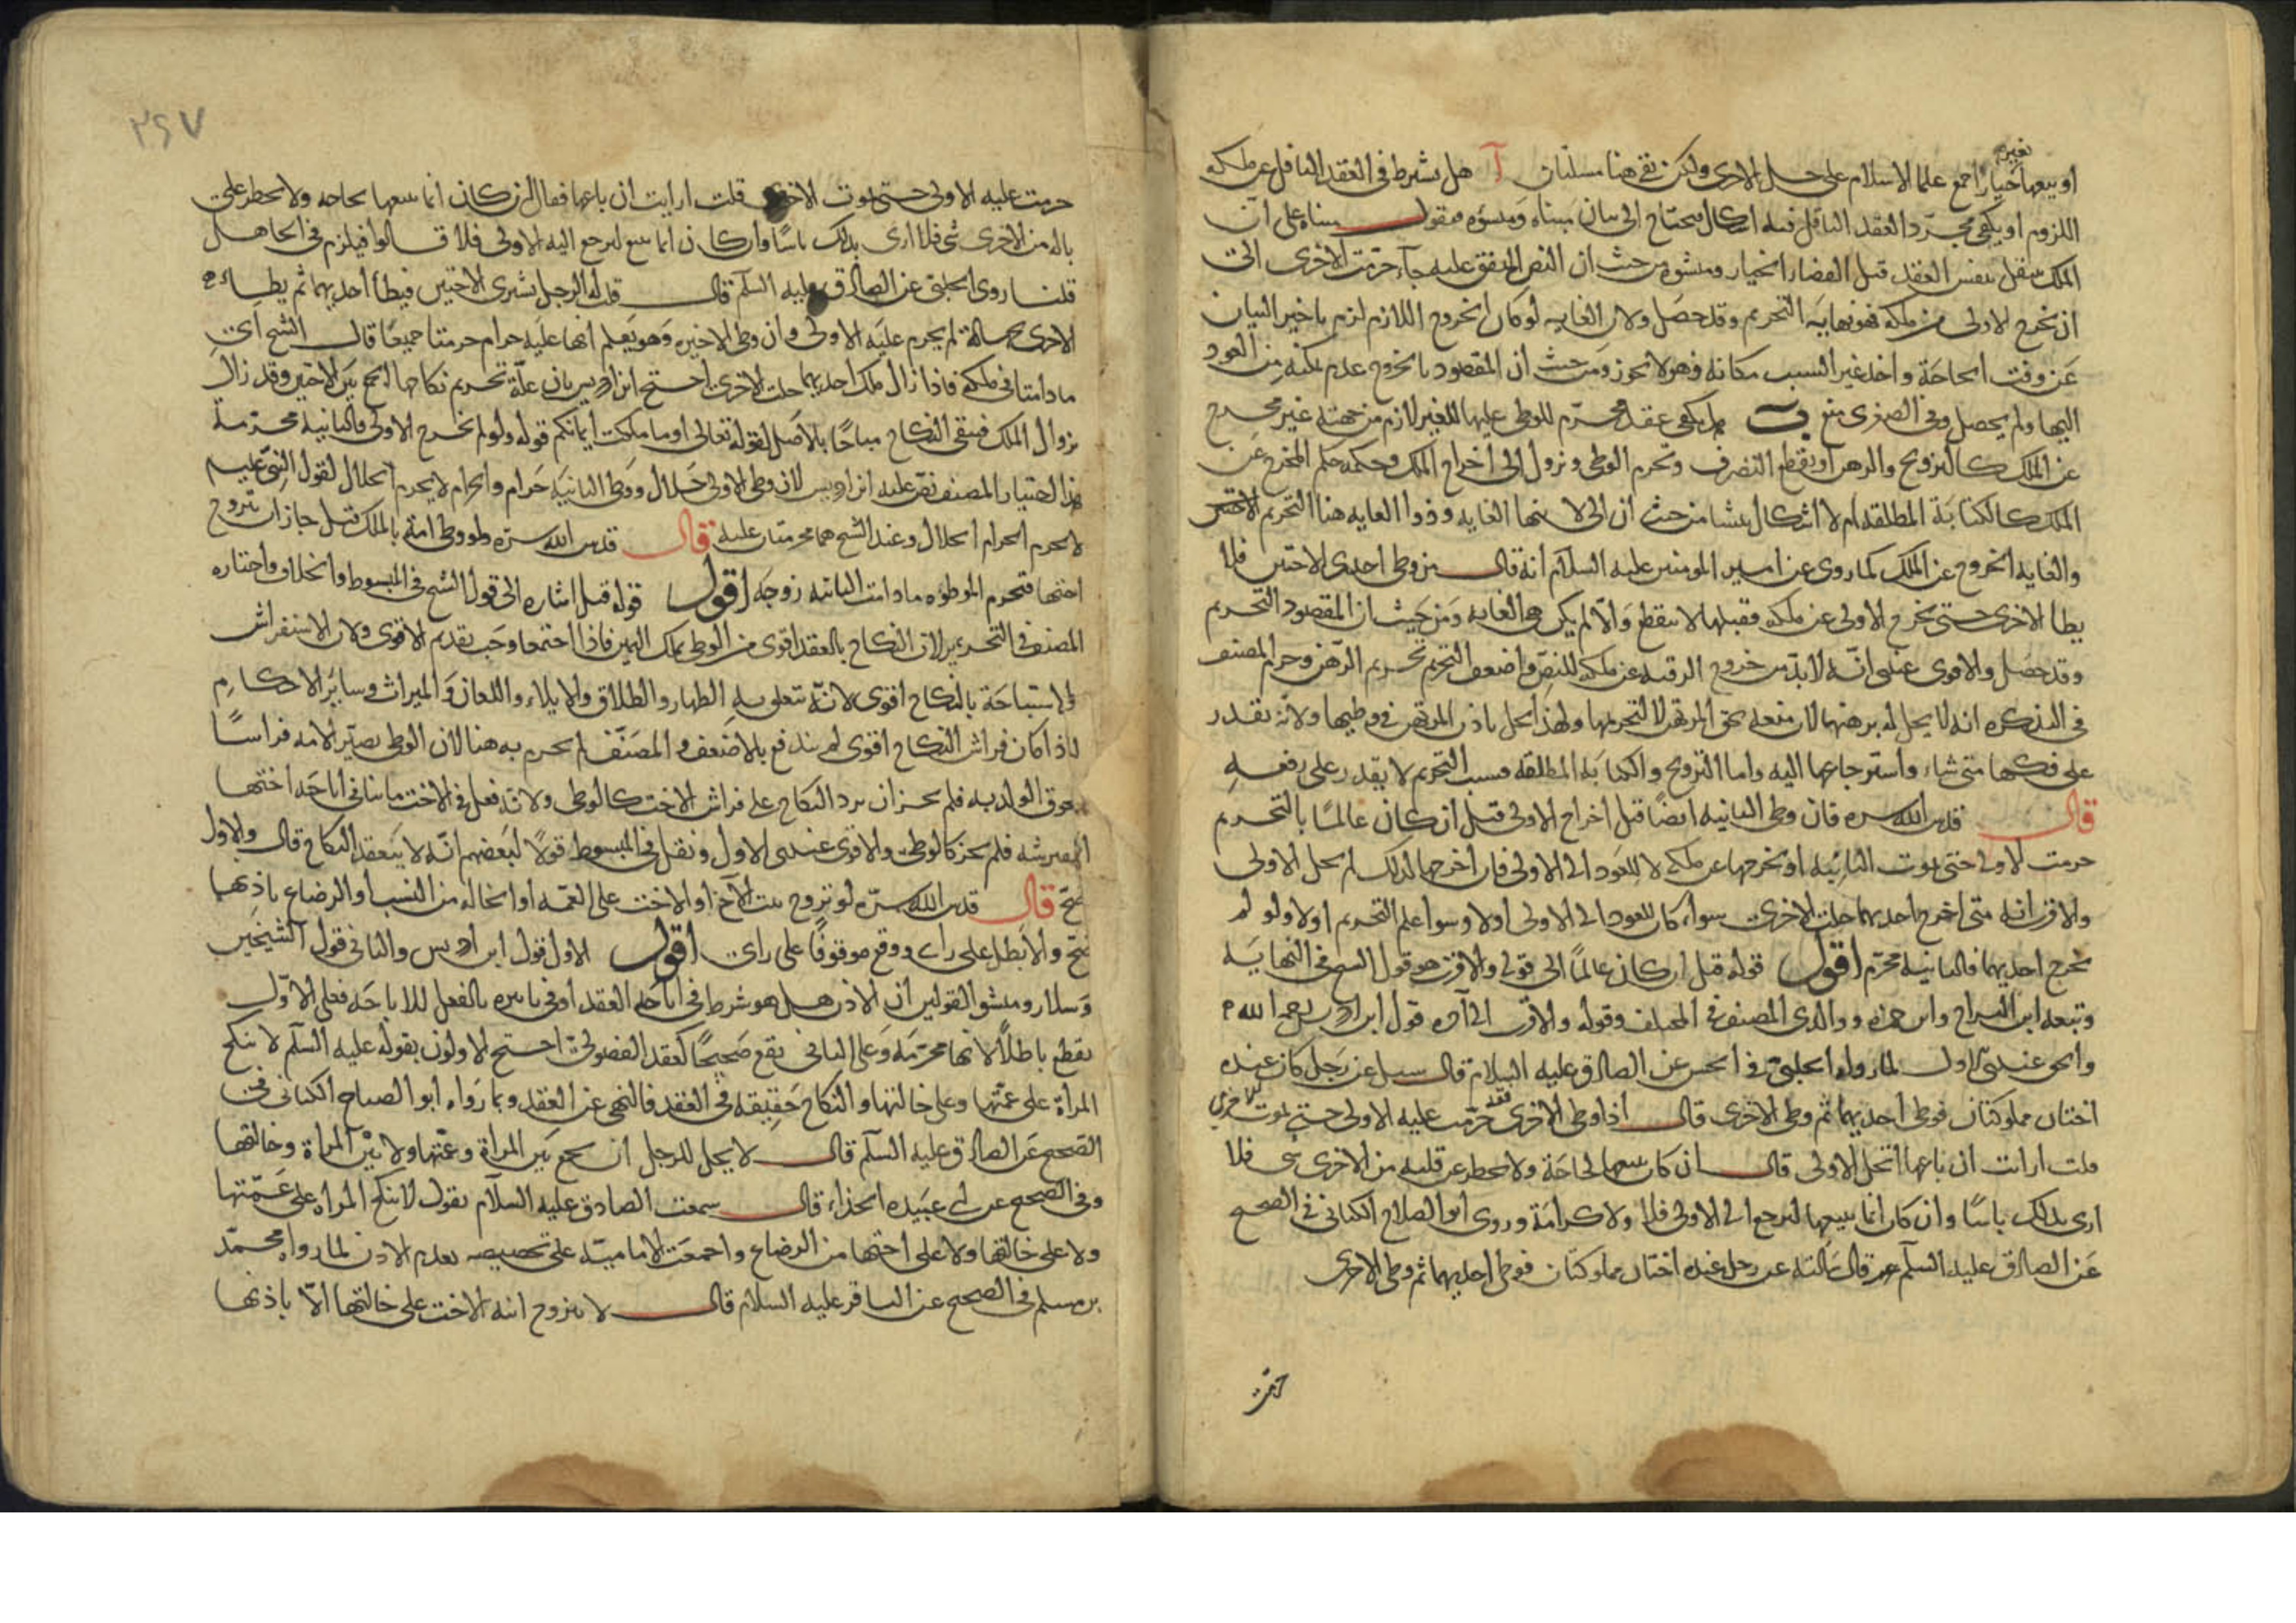 بغير
او يبيعها خيار اجمع علما الاسلام على حل الاخرى ولكن بقى هنا مسئلتان آ هل يشترط فى العقد الناقل عن ملكه
اللزوم او يكفى مجرد العقد الناقل فيه اشكال يحتاج الى بيان مبناه ومنشؤه فنقول مبناه على ان
الملك ينتقل بنفس العقد قبل انقضا الخيار ومنشؤه من حيث ان النص المتفق عليه جآء حرمت الاخرى الى
ان تخرج الاولى من ملكه فهو نهاية التحريم وقد حصل ولان الغايه لو كان الخروج اللازم لزم تاخير البيان
عن وقت الحاجة واخذ غير السبب مكانه وهو لا يجوز ومن حيث ان المقصود بالخروج عدم تمكنه من العود
اليها ولم يحصل وفى الصغرى منع ب هل يكفى عقد محرم للوطى عليها للغير لازم من جهته غير مخرج
عن الملك كالتزويج والرهن او يقطع التصرف وتحرم الوطى ونزول الى اخراج الملك وحكمه حكم المخرج عن
الملك كالكتابة المطلقه ام لا اشكال ينشا من حيث ان الى لانتها الغايه وذو الغايه هنا التحريم الاختين
والغايه الخروج عن الملك لما روى عن امير المومنين عليه السلام انه قال من وطى احدى الاختين فلا
يطا الاخرى حتى يخرج الاولى عن ملكه فقبلها لا ينقطع والا لم يكن هى الغايه ومن حيث ان المقصود التحريم
وقد حصل والاقوى عندى انه لا بد من خروج الرقبه عن ملكه للنص واضعف التحريم تحريم الرهن وجزم المصنف
فى التذكره انه لا يحل له برهنها لان منعه لحق المرتهن لا لتحريمها ولهذا يحل باذن المرتهن فى وطيها ولانه يقدر
على فكها متى شاء واسترجاعها اليه واما التزويج والكتابه المطلقه فسبب التحريم لا يقدر على رفعه
قال قدس الله سره فان وطى الثانيه ايضا قبل اخراج الاولى قيل ان كان عالمًا بالتحريم
حرمت الاولى حتى يموت الثانيه او يخرجها عن ملكه لا للعود الى الاولى فان اخرجها لذلك لم يحل الاولى
والاقرب انه متى اخرج احديهما حلت الاخرى سواء كان للعود الى الاولى اولا وسوا علم التحريم اولا ولو لم
يخرج احديهما فالثانيه محرم اقول قوله قيل ان كان عالمًا الى قوله والاقرب هو قول الشيخ فى النهاية
وتبعه ابن البراج وابن حمزه ووالدى المصنف فى المختلف وقوله والاقرب الى آخره قول ابن ادريس رحمه الله
والحق عندى الاول لما رواه الحلبى فى الحسن عن الصادق عليه السلام قال سيل عن رجل كان عنده
اختان مملوكتان فوطى احديهما ثم وطى الاخرى قال اذا وطى الاخرى فقد حرمت عليه الاولى حتى تموت الاخرى
قلت ارايت ان باعها اتحل الاولى قال ان كان يبيعها لحاجة ولا يخطر عن قلبه من الاخرى شى فلا
ارى بذلك باسًا وان كان انما يبيعها ليرجع الى الاولى فلا ولا كرامة وروى ابو الصلاح الكنانى فى الصحيح
عن الصادق عليه السلم قال سالته عن رجل عنده اختان مملوكتان فوطى احديهما ثم وطى الاخرى
حرمت
٣٤٧
حرمت عليه الاولى حتى تموت الاخرى قلت ارايت ان باعها فقال ان كان انما يبيعها لحاجه ولا يخطر على
باله من الاخرى شى فلا ارى بذلك باسًا وان كان انما يبيع ليرجع اليه الاولى فلا قالوا فيلزم فى الجاهل
قلنا روى الحلبى عن الصادق عليه السلم قال قلت له الرجل يشترى الاختين فيطأ احديهما ثم يطاء
الاخرى بجهالة لم يحرم عليه الاولى وان وطى الاخيره وهو يعلم انها عليه حرام حرمتا جميعًا قال الشيخ اى
مادامتا فى ملكه فاذا زال ملك احديهما حلت الاخرى احتج ابن ادريس بان علة تحريم نكاحها الجمع بين الاختين وقد زال
بزوال الملك فيبقى النكاح مباحًا بالاصل لقوله تعالى او ما ملكت ايمانكم قوله ولو لم تخرج الاولى فالثانيه محرمة
هذا اختيار المصنف نص عليه ابن ادريس لان وطى الاولى حلال ووطى الثانية حرام والحرام لا يحرم الحلال لقول النبى عليه
لا يحرم الحرام الحلال وعند الشيخ هما محرمتان عليه قال قدس الله سره ولو وطى امة بالملك قيل جاز ان يتزوج
اختها فتحرم الموطؤه مادامت الثانيه زوجه اقول قوله قيل اشاره الى قول الشيخ فى المبسوط والخلاف واختاره
المصنف فى التحرير لان النكاح بالعقد اقوى من الوطى بملك اليمين فاذا اجتمعا وجب تقديم الاقوى ولان الاستفراش
والاستباحة بالنكاح اقوى لانه يتعلق به الظهار والطلاق والايلاء واللعان والميراث وساير الاحكام
فاذا كان فراش النكاح اقوى لم يندفع بالاضعف والمصنف لم يجزم به هنا لان الوطى يصير الامه فراشًا
يلحق الولد به فلم يجز ان يرد النكاح على فراش الاخت كالوطى ولانه فعل فى الاخت ما ينافى اباحة اختها
المفترشه فلم يجز كالوطى والاقوى عندى الاول ونقل فى المبسوط قولاً لبعضهم انه لا ينعقد النكاح قال والاول
اصح قال قدس الله سره لو تزوج بنت الاخ او الاخت على العمه او الخاله من النسب او الرضاع باذنهما
صح والا بطل على راى ووقع موقوفًا على راى اقول الاول قول ابن ادريس والثانى قول الشيخين
وسلار ومنشؤ القولين ان الاذن هل هو شرط فى اباحة العقد او فى تاثيره بالفعل للاباحة فعلى الاول
يقع باطلاً لانها محرمة وعلى الثانى يقع صحيحًا كعقد الفضولى احتج الاولون بقوله عليه السلم لا ينكح
المرأة على عمتها وعلى خالتها والنكاح حقيقة فى العقد فالنهى عن العقد وبما رواه ابو الصباح الكنانى فى
الصحيح عن الصادق عليه السلم قال لا يحل للرجل ان يجمع بين المراة وعمتها ولا بين المراة وخالتها
وفى الصحيح عن ابى عبيده الحذاء قال سمعت الصادق عليه السلام يقول لا ينكح المراه على عمتها
ولا على خالتها ولا على اختها من الرضاع واجمعت الامامية على تخصيصه بعدم الاذن لما رواه محمد
بن مسلم فى الصحيح عن الباقر عليه السلام قال لا يتزوج ابنه الاخت على خالتها الا باذنها